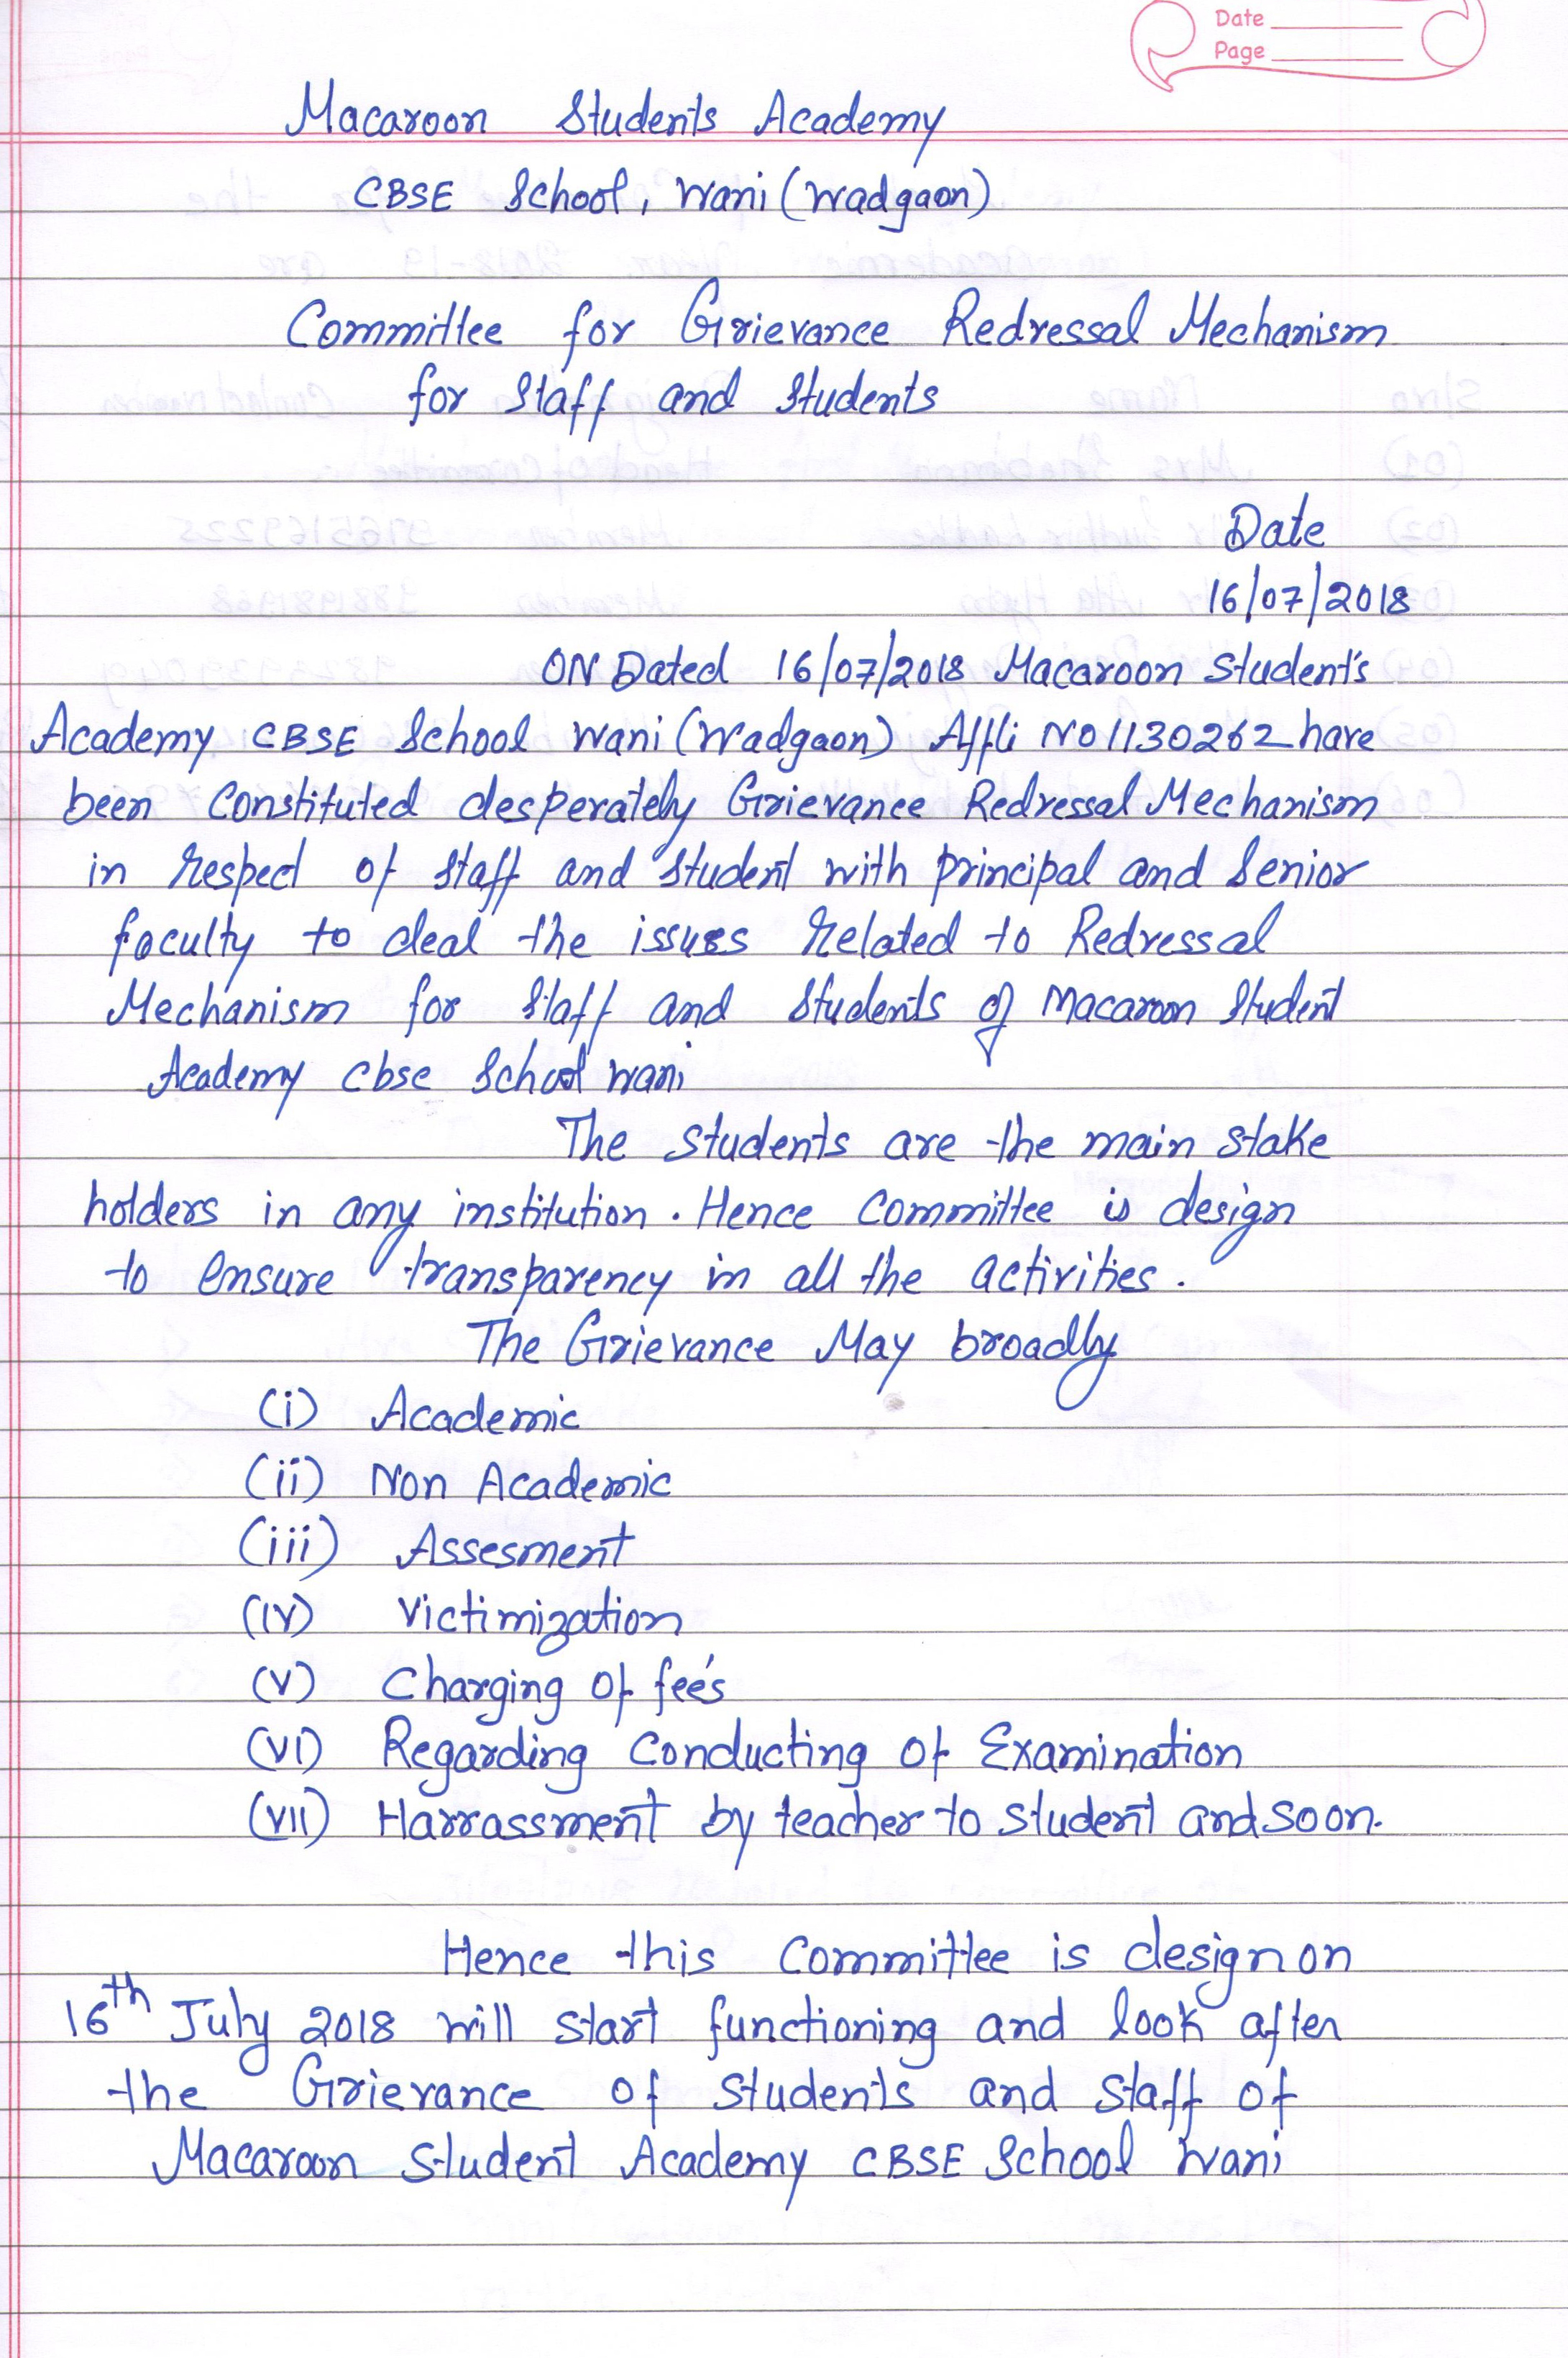 Date
Page
Macaroon Students Academy
CBSE School, Wani (Wadgaon)
Committee for Grievance Redressal Mechanism
for Staff and Students
Date
16/07/2018
ON Dated 16/07/2018 Macaroon Student's
Academy CBSE School Wani (Wadgaon) Affli No 1130262 have
been Constituted desperately Grievance Redressal Mechanism
in respect of staff and student with principal and Senior
faculty to deal the issues related to Redressal
Mechanism for Staff and Students of Macaroon Student
Academy cbse School wani
The students are the main stake
holders in any institution. Hence Committee is design
to ensure transparency in all the activities.
The Grievance May broadly
(i) Academic
(ii) Non Academic
(iii) Assesment
(iv) Victimization
(v) Charging of fee's
(vi) Regarding Conducting of Examination
(vii) Harrassment by teacher to student and soon.
Hence this Committee is design on
16th July 2018 will start functioning and look after
the Grievance of students and staff of
Macaroon Student Academy CBSE School Wani